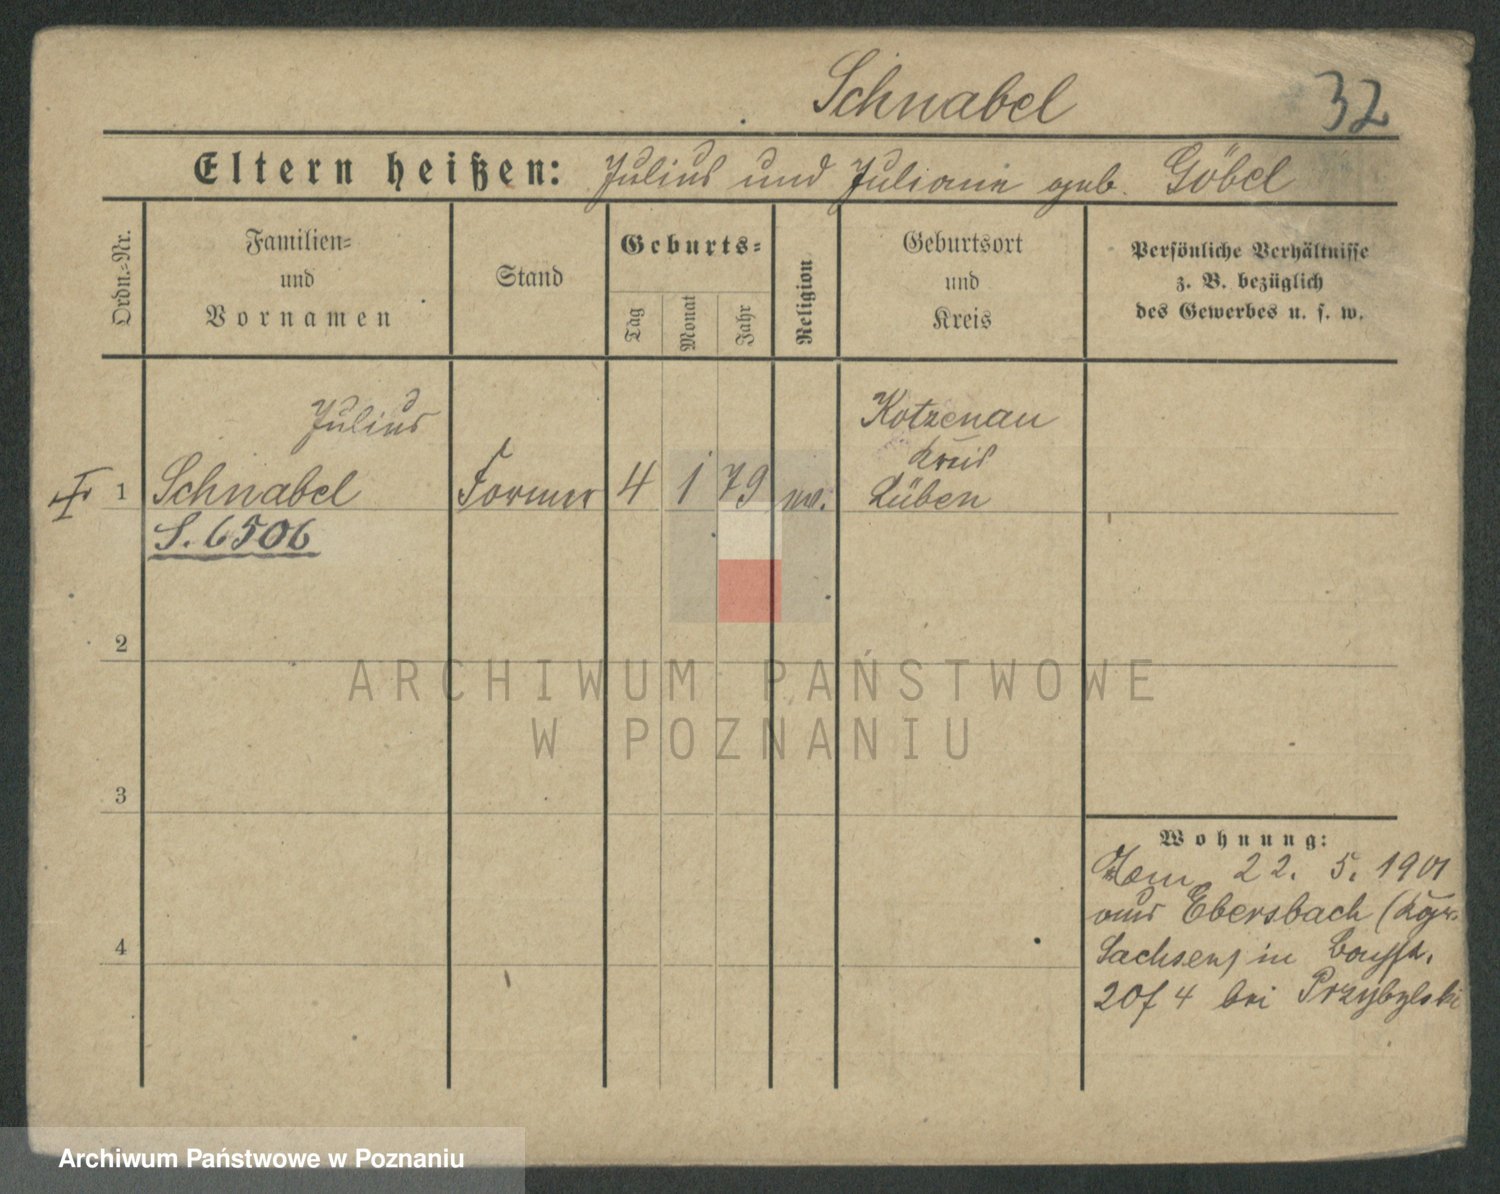 Schnabel 32
Eltern heißen: Julius und Juliane geb. Göbel
Ordn.-Nr.
Familien-
und
Vornamen
Stand
Geburts-
Tag
Monat
Jahr
Religion
Geburtsort
und
Kreis
Persönliche Verhältnisse
z. B. bezüglich
des Gewerbes u. s. w.
Julius
1 Schnabel Former 4 1 79 ev.
S. 6506
Kotzenau
Kreis
Lüben
2
3
4
ARCHIWUM PAŃSTWOWE
W POZNANIU
Wohnung:
Vom 22. 5. 1901
aus Ebersbach (Kgr.
Sachsen) in
20 f 4 bei Przybylski
Archiwum Państwowe w Poznaniu